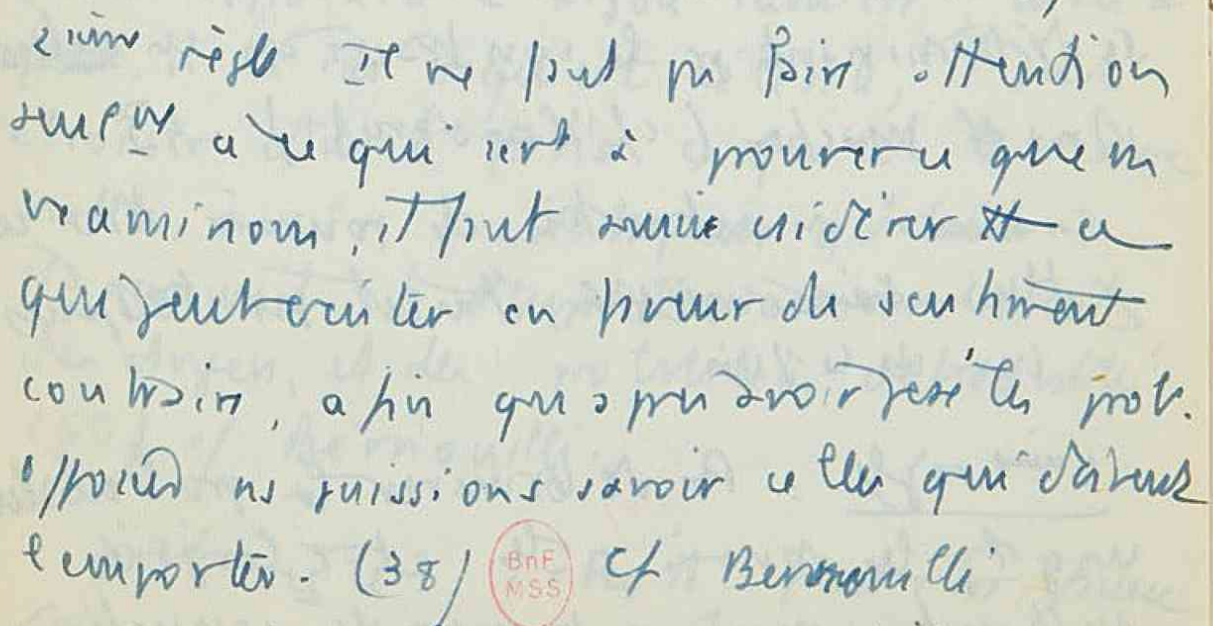 2ième règle Il ne faut pas faire attention
seulemt à ce qui sert à prouver ce que ns
examinons, il faut aussi considérer tt ce
qui peut exister en faveur du sentiment
contraire, afin qu'après avoir pesé les prob.
opposées ns puissions savoir celles qui doivent
l'emporter. (38) BnF MSS Cf Bernouilli